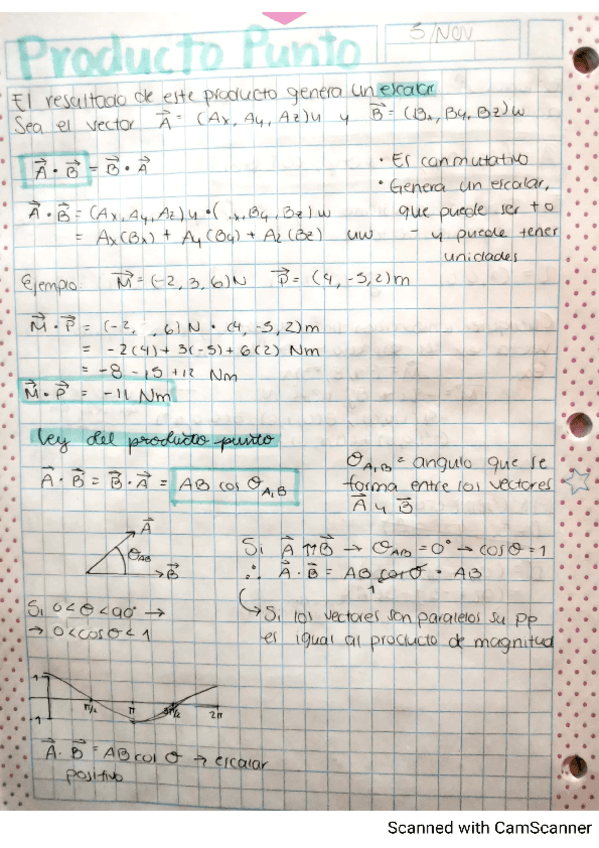 Producto Punto
5/NOV
El resultado de este producto genera un escalar
Sea el vector A⃗ = (Ax, Ay, Az)u y B⃗ = (Bx, By, Bz)w
A⃗ · B⃗ = B⃗ · A⃗
• Es conmutativo
• Genera un escalar,
que puede ser + o
- y puede tener
unidades
A⃗ · B⃗ = (Ax, Ay, Az)u · ( , By, Bz)w
= Ax(Bx) + Ay(By) + Az(Bz) uw
Ejemplo: M⃗ = (-2, 3, 6)N P⃗ = (4, -5, 2)m
M⃗ · P⃗ = (-2, , 6)N · (4, -5, 2)m
= -2(4) + 3(-5) + 6(2) Nm
= -8 - 15 + 12 Nm
M⃗ · P⃗ = -11 Nm
Ley del producto punto
A⃗ · B⃗ = B⃗ · A⃗ = AB cos θA,B
θA,B = angulo que se
forma entre los vectores
A⃗ y B⃗
A⃗
θAB
B⃗
Si A⃗ ⇈ B⃗ → θA,B = 0° → cosθ = 1
∴ A⃗ · B⃗ = AB cosθ = AB
1
↳ Si los vectores son paralelos su pp
es igual al producto de magnitud
Si 0 < θ < 90° →
→ 0 < cosθ < 1
1
-1
π/2 π 3π/2 2π
A⃗ · B⃗ = AB cos θ → escalar
positivo
Scanned with CamScanner